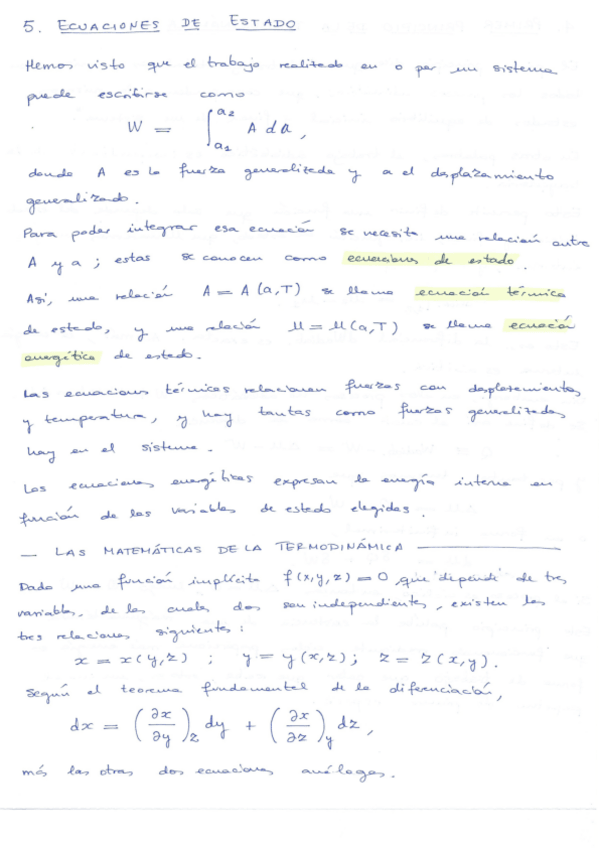 5. ECUACIONES DE ESTADO
Hemos visto que el trabajo realizado en o por un sistema
puede escribirse como
W = ∫_{a₁}^{a₂} A da,
donde A es la fuerza generalizada y a el desplazamiento
generalizado.
Para poder integrar esa ecuación se necesita una relación entre
A y a; estas se conocen como ecuaciones de estado.
Así, una relación A = A(a,T) se llama ecuación térmica
de estado, y una relación U = U(a,T) se llama ecuación
energética de estado.
Las ecuaciones térmicas relacionan fuerzas con desplazamientos
y temperatura, y hay tantas como fuerzas generalizadas
hay en el sistema.
Las ecuaciones energéticas expresan la energía interna en
función de las variables de estado elegidas.
— LAS MATEMÁTICAS DE LA TERMODINÁMICA —
Dada una función implícita f(x,y,z) = 0, que "depende" de tres
variables, de las cuales dos son independientes, existen las
tres relaciones siguientes:
x = x(y,z) ; y = y(x,z); z = z(x,y).
Según el teorema fundamental de la diferenciación,
dx = (∂x/∂y)_z dy + (∂x/∂z)_y dz,
más las otras dos ecuaciones análogas.